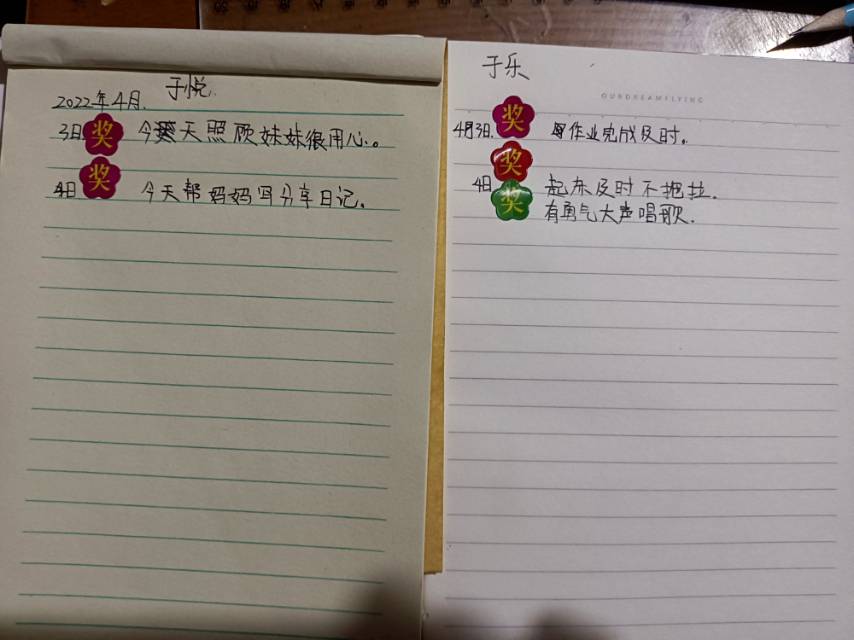 于悦
2022年4月.
3日 奖 今天照顾妹妹很用心。
奖
4日 今天帮妈妈写分享日记。
于乐
OURDREAMFLYING
4月3日. 奖 作业完成及时。
奖
4日 起床及时不拖拉.
奖 有勇气大声唱歌.